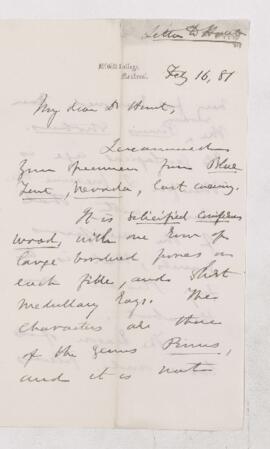 Letter to Hunt
McGill College,
Montreal.
Feby 16, 81
My dear Dr Hunt,
I examined
your specimen from Blue
Tent, Nevada, last evening.
It is silicified coniferous
wood, with one row of
large bordered pores on
each fibre, and short
medullary rays. The
characters are those
of the genus Pinus,
and it is not